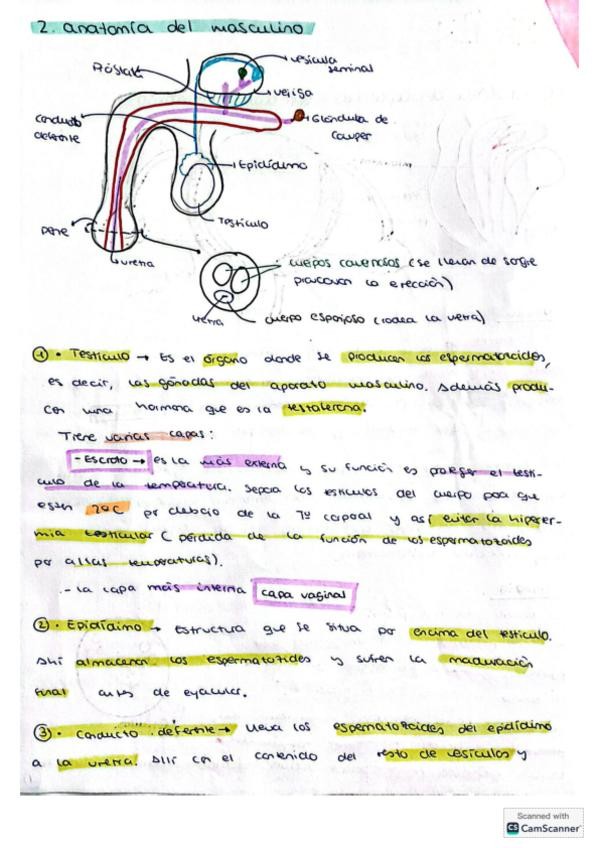 2. anatomía del masculino
Próstata
vesícula
seminal
vejiga
conducto
deferente
Glándula de
Cowper
Epidídimo
Testículo
pene
uretra
cuerpos cavernosos (se llenan de sangre
provocan la erección)
uretra
cuerpo esponjoso (rodea la uretra)
1 • Testículo → Es el órgano donde se producen los espermatozoides,
es decir, las gónadas del aparato masculino. Además produ-
cen una hormona que es la testosterona.
Tiene varias capas:
- Escroto → es la más externa y su función es proteger el testí-
culo de la temperatura. Separa los testículos del cuerpo para que
esten 2ºC por debajo de la Tª corporal y así evitar la hiperter-
mia testicular (pérdida de la función de los espermatozoides
por altas temperaturas).
- La capa más interna capa vaginal
2 • Epidídimo → Estructura que se situa por encima del testículo.
Ahí almacenan los espermatozoides y sufren la maduración
final antes de eyacular.
3 • Conducto deferente → lleva los espermatozoides del epidídimo
a la uretra. Allí con el contenido del resto de vesículas y
Scanned with
CS CamScanner